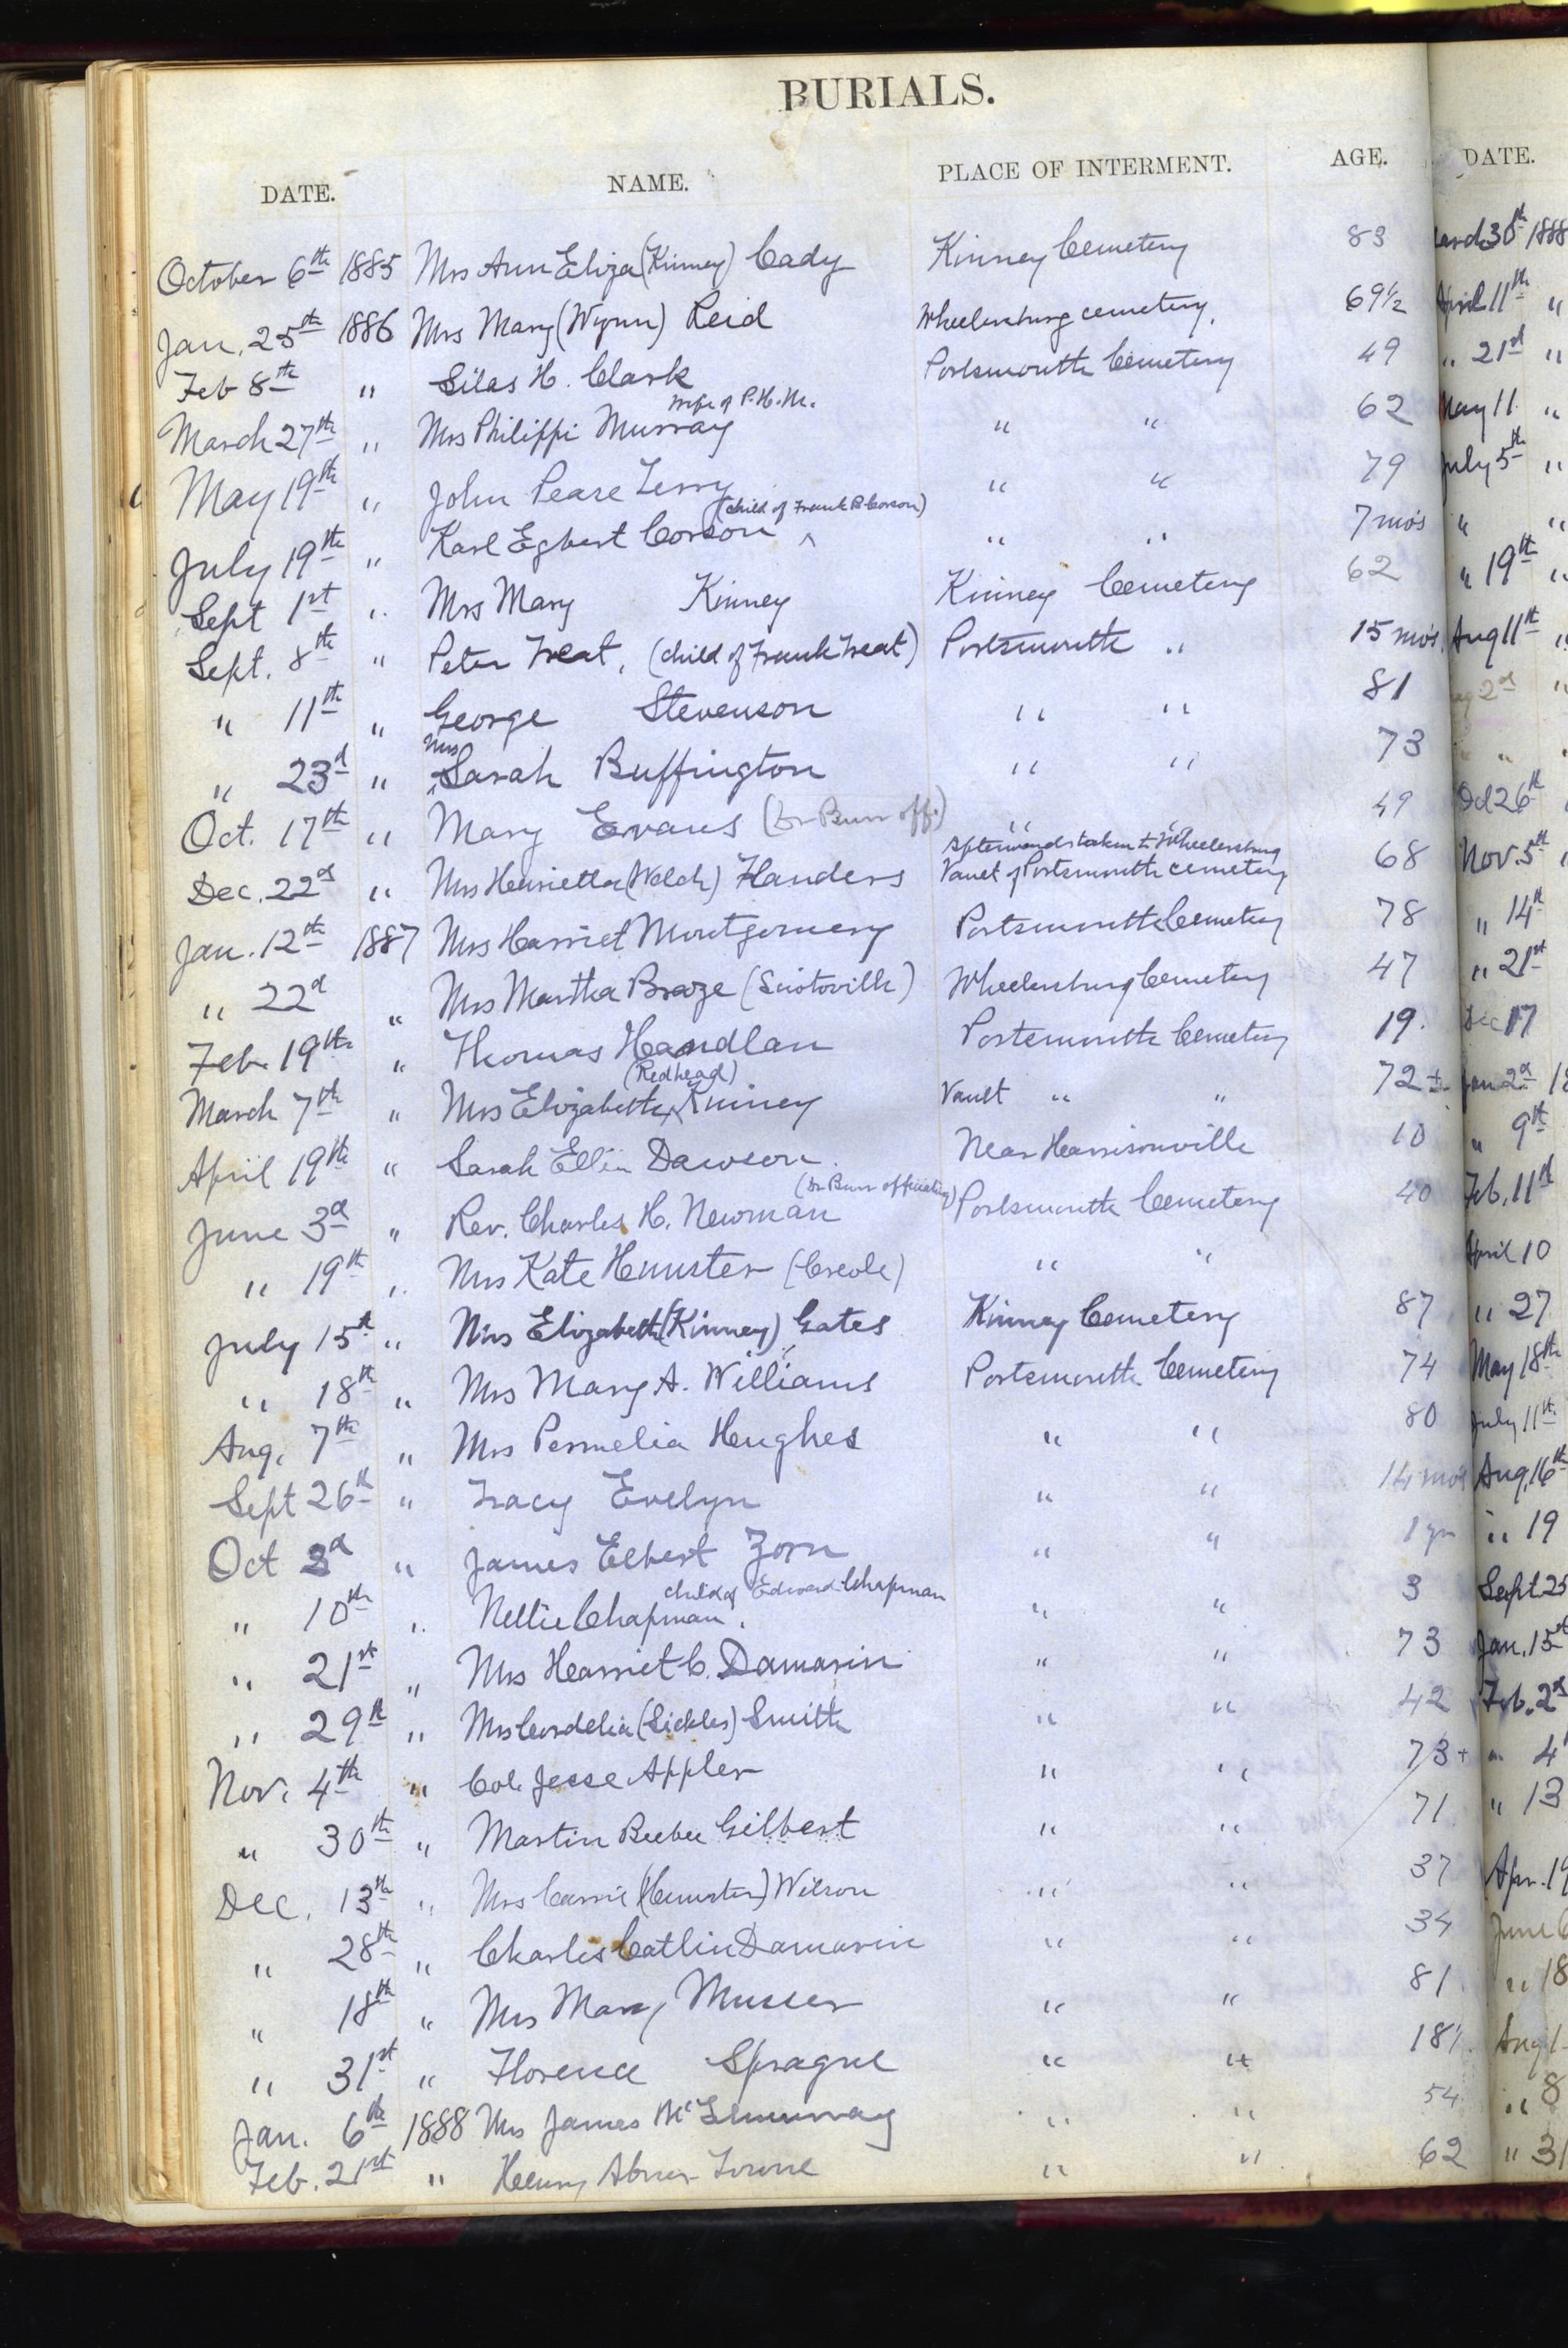 BURIALS.
DATE. NAME. PLACE OF INTERMENT. AGE. DATE.
October 6th 1885 Mrs Ann Eliza (Kinney) Cady Kinney Cemetery 83
Jan. 25th 1886 Mrs Mary (Wynn) Reid Wheelersburg cemetery. 69½
Feb 8th " Silas H. Clark Portsmouth Cemetery 49
wife of P.H.M.
March 27th " Mrs Philippi Murray " " 62
May 19th " John Pease Terry " " 79
(child of Frank B Corson)
July 19th " Karl Egbert Corson ^ " " 7 mo's
Sept 1st " Mrs Mary Kinney Kinney Cemetery 62
Sept. 8th " Peter Treat, (child of Frank Treat) Portsmouth " 15 mo's
" 11th " George Stevenson " " 81
Mrs
" 23d " ^Sarah Buffington " " 73
Oct. 17th " Mary Evans (Dr Burr off.) " " 49
Afterwards taken to Wheelersburg
Dec. 22d " Mrs Henrietta (Welch) Flanders Vault of Portsmouth cemetery 68
Jan. 12th 1887 Mrs Harriet Montgomery Portsmouth Cemetery 78
" 22d " Mrs Martha Braze (Sciotoville) Wheelersburg Cemetery 47
Feb. 19th " Thomas Handlan Portsmouth Cemetery 19.
(Redhead)
March 7th " Mrs Elizabeth ^ Kinney Vault " " 72
April 19th " Sarah Ellin Dawson Near Harrisonville 10
(Dr Burr officiating)
June 3d " Rev. Charles H. Newman Portsmouth Cemetery 40
" 19th " Mrs Kate Hunster (Creole) " "
July 15th " Mrs Elizabeth (Kinney) Gates Kinney Cemetery 87
" 18th " Mrs Mary A. Williams Portsmouth Cemetery 74
Aug. 7th " Mrs Permelia Hughes " " 80
Sept 26th " Tracy Evelyn " " 14 mo's
Oct 3d " James Elbert Zorn " " 1 yr
child of Edward Chapman
" 10th " Nellie Chapman. " " 3
" 21st " Mrs Harriet C. Damarin " " 73
" 29th " Mrs Cordelia (Sickles) Smith " " 42
Nov. 4th " Col. Jesse Appler " " 73+
" 30th " Martin Beebee Gilbert " " 71
Dec. 13th " Mrs Carrie (Hunster) Wilson " " 37
" 28th " Charles Catlin Damarin " " 34
" 18th " Mrs Mary Musser " " 81
" 31st " Florence Sprague " " 18½
Jan. 6th 1888 Mrs James " " 54
Feb. 21st " Henry Abner Towne " " 62
30th 1888
April 11th "
" 21st "
May 11 "
July 5th "
" "
" 19th "
Aug 11th "
2d "
Oct 26th
Nov. 5th
" 14th
" 21st
Dec 17
Jan 2d
" 9th
Feb. 11th
April 10
" 27
May 18th
July 11th
Aug. 16th
" 19
Sept 25
Jan. 15th
Feb. 2d
" 4
" 13
Apr. 19
June 6
" 18
Aug 1
" 8
" 31